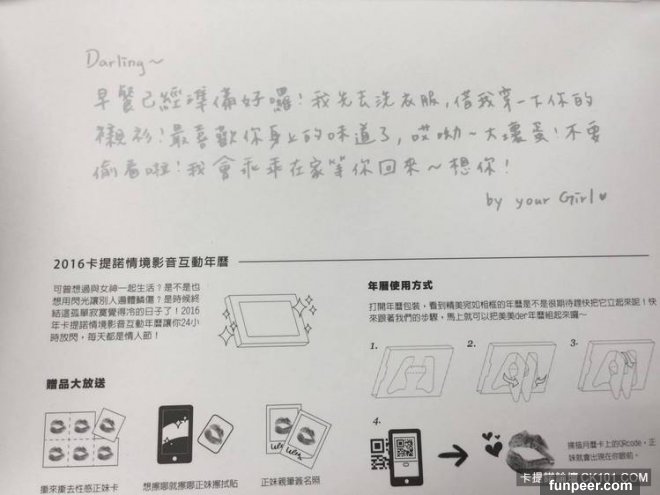 Darling~
早餐已經準備好囉!我先去洗衣服,借我穿一下你的
襯衫!最喜歡你身上的味道了,哎呦~大壞蛋!不要
偷看啦!我會乖乖在家等你回來~想你!
by your Girl♥
2016卡提諾情境影音互動年曆
可曾想過與女神一起生活?是不是也
想用閃光讓別人遍體鱗傷?是時候終
結這孤單寂寞覺得冷的日子了!2016
年卡提諾情境影音互動年曆讓你24小
時放閃,每天都是情人節!
贈品大放送
撕來撕去性感正妹卡
想擦哪就擦哪正妹擦拭貼
正妹親筆簽名照
年曆使用方式
打開年曆包裝,看到精美宛如相框的年曆是不是很期待趕快把它立起來呢!快
來跟著我們的步驟,馬上就可以把美美der年曆組起來囉~
1.
2.
3.
4.
掃描月曆卡上的QRcode,正
妹就會出現在你眼前。
卡提諾論壇 CK101.COM
funpeer.com